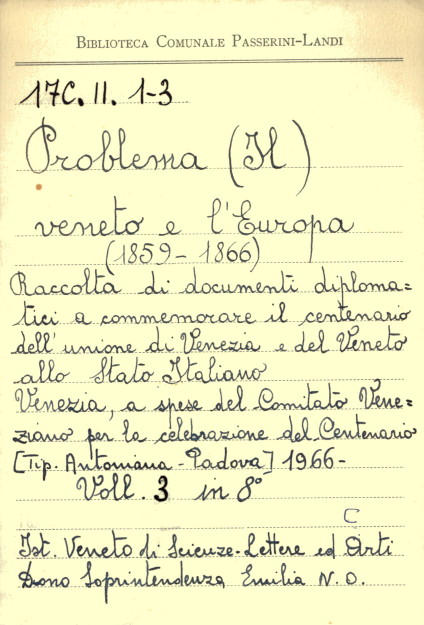 BIBLIOTECA COMUNALE PASSERINI-LANDI
17C. II. 1-3
Problema (Il)
veneto e l'Europa
(1859 - 1866)
Raccolta di documenti diploma=
tici a commemorare il centenario
dell'unione di Venezia e del Veneto
allo Stato Italiano
Venezia, a spese del Comitato Vene=
ziano per la celebrazione del Centenario
[Tip. Antoniana - Padova] 1966 -
Voll. 3 in 8°
C
Ist. Veneto di Scienze-Lettere ed Arti
Dono Soprintendenza Emilia N. O.